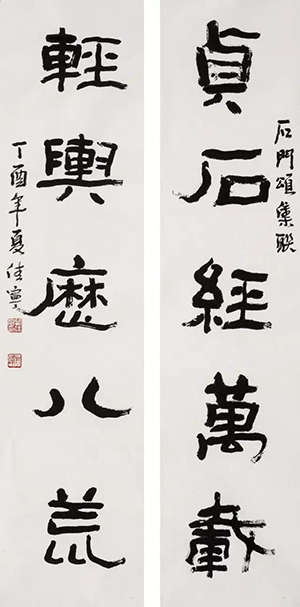 石門頌集联
貞石經萬載
輕輿歷八荒
丁酉年夏佳寧